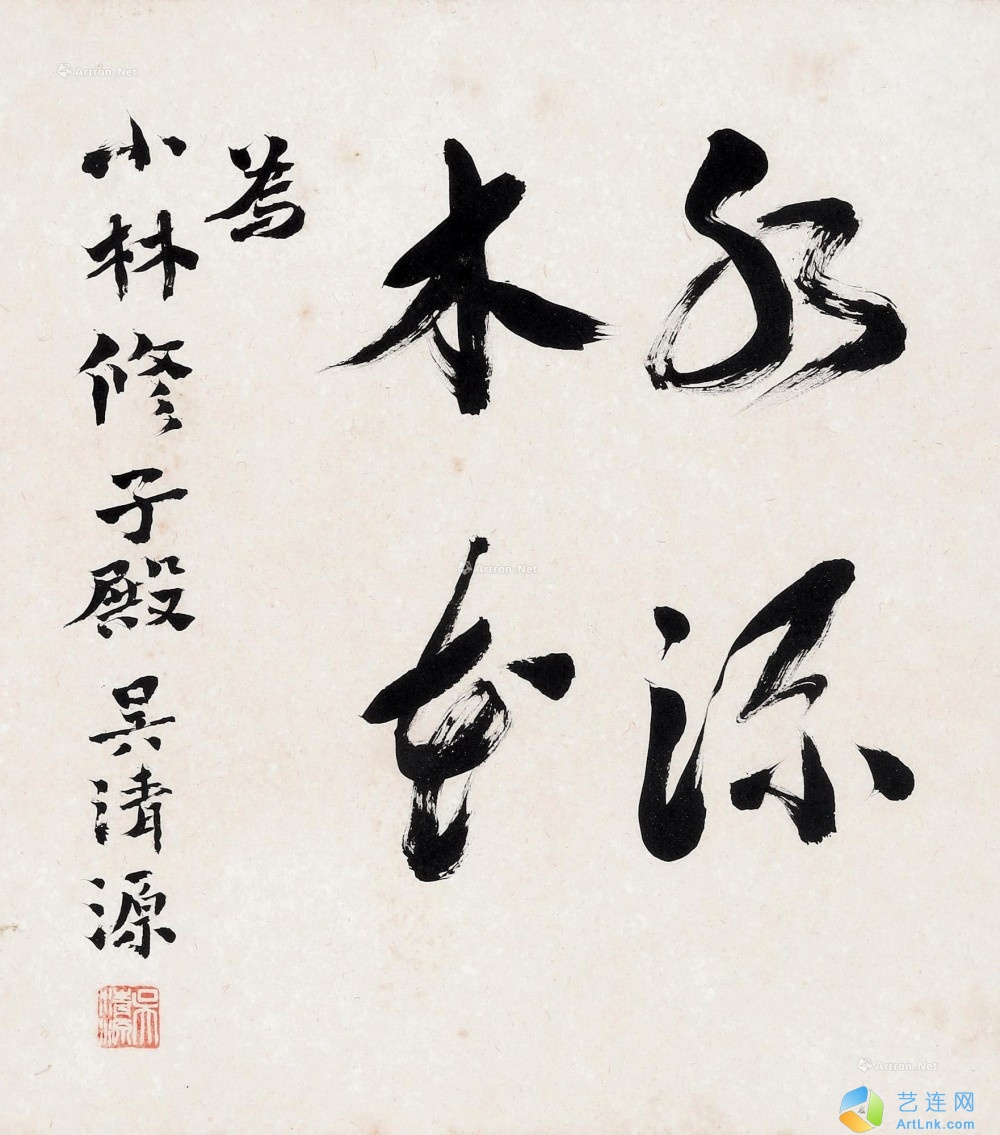 水源
木本
為
小林修子殿 吴清源
吳清源
Artron.Net
Artron.Net
Artron.Net
艺连网
ArtLnk.com